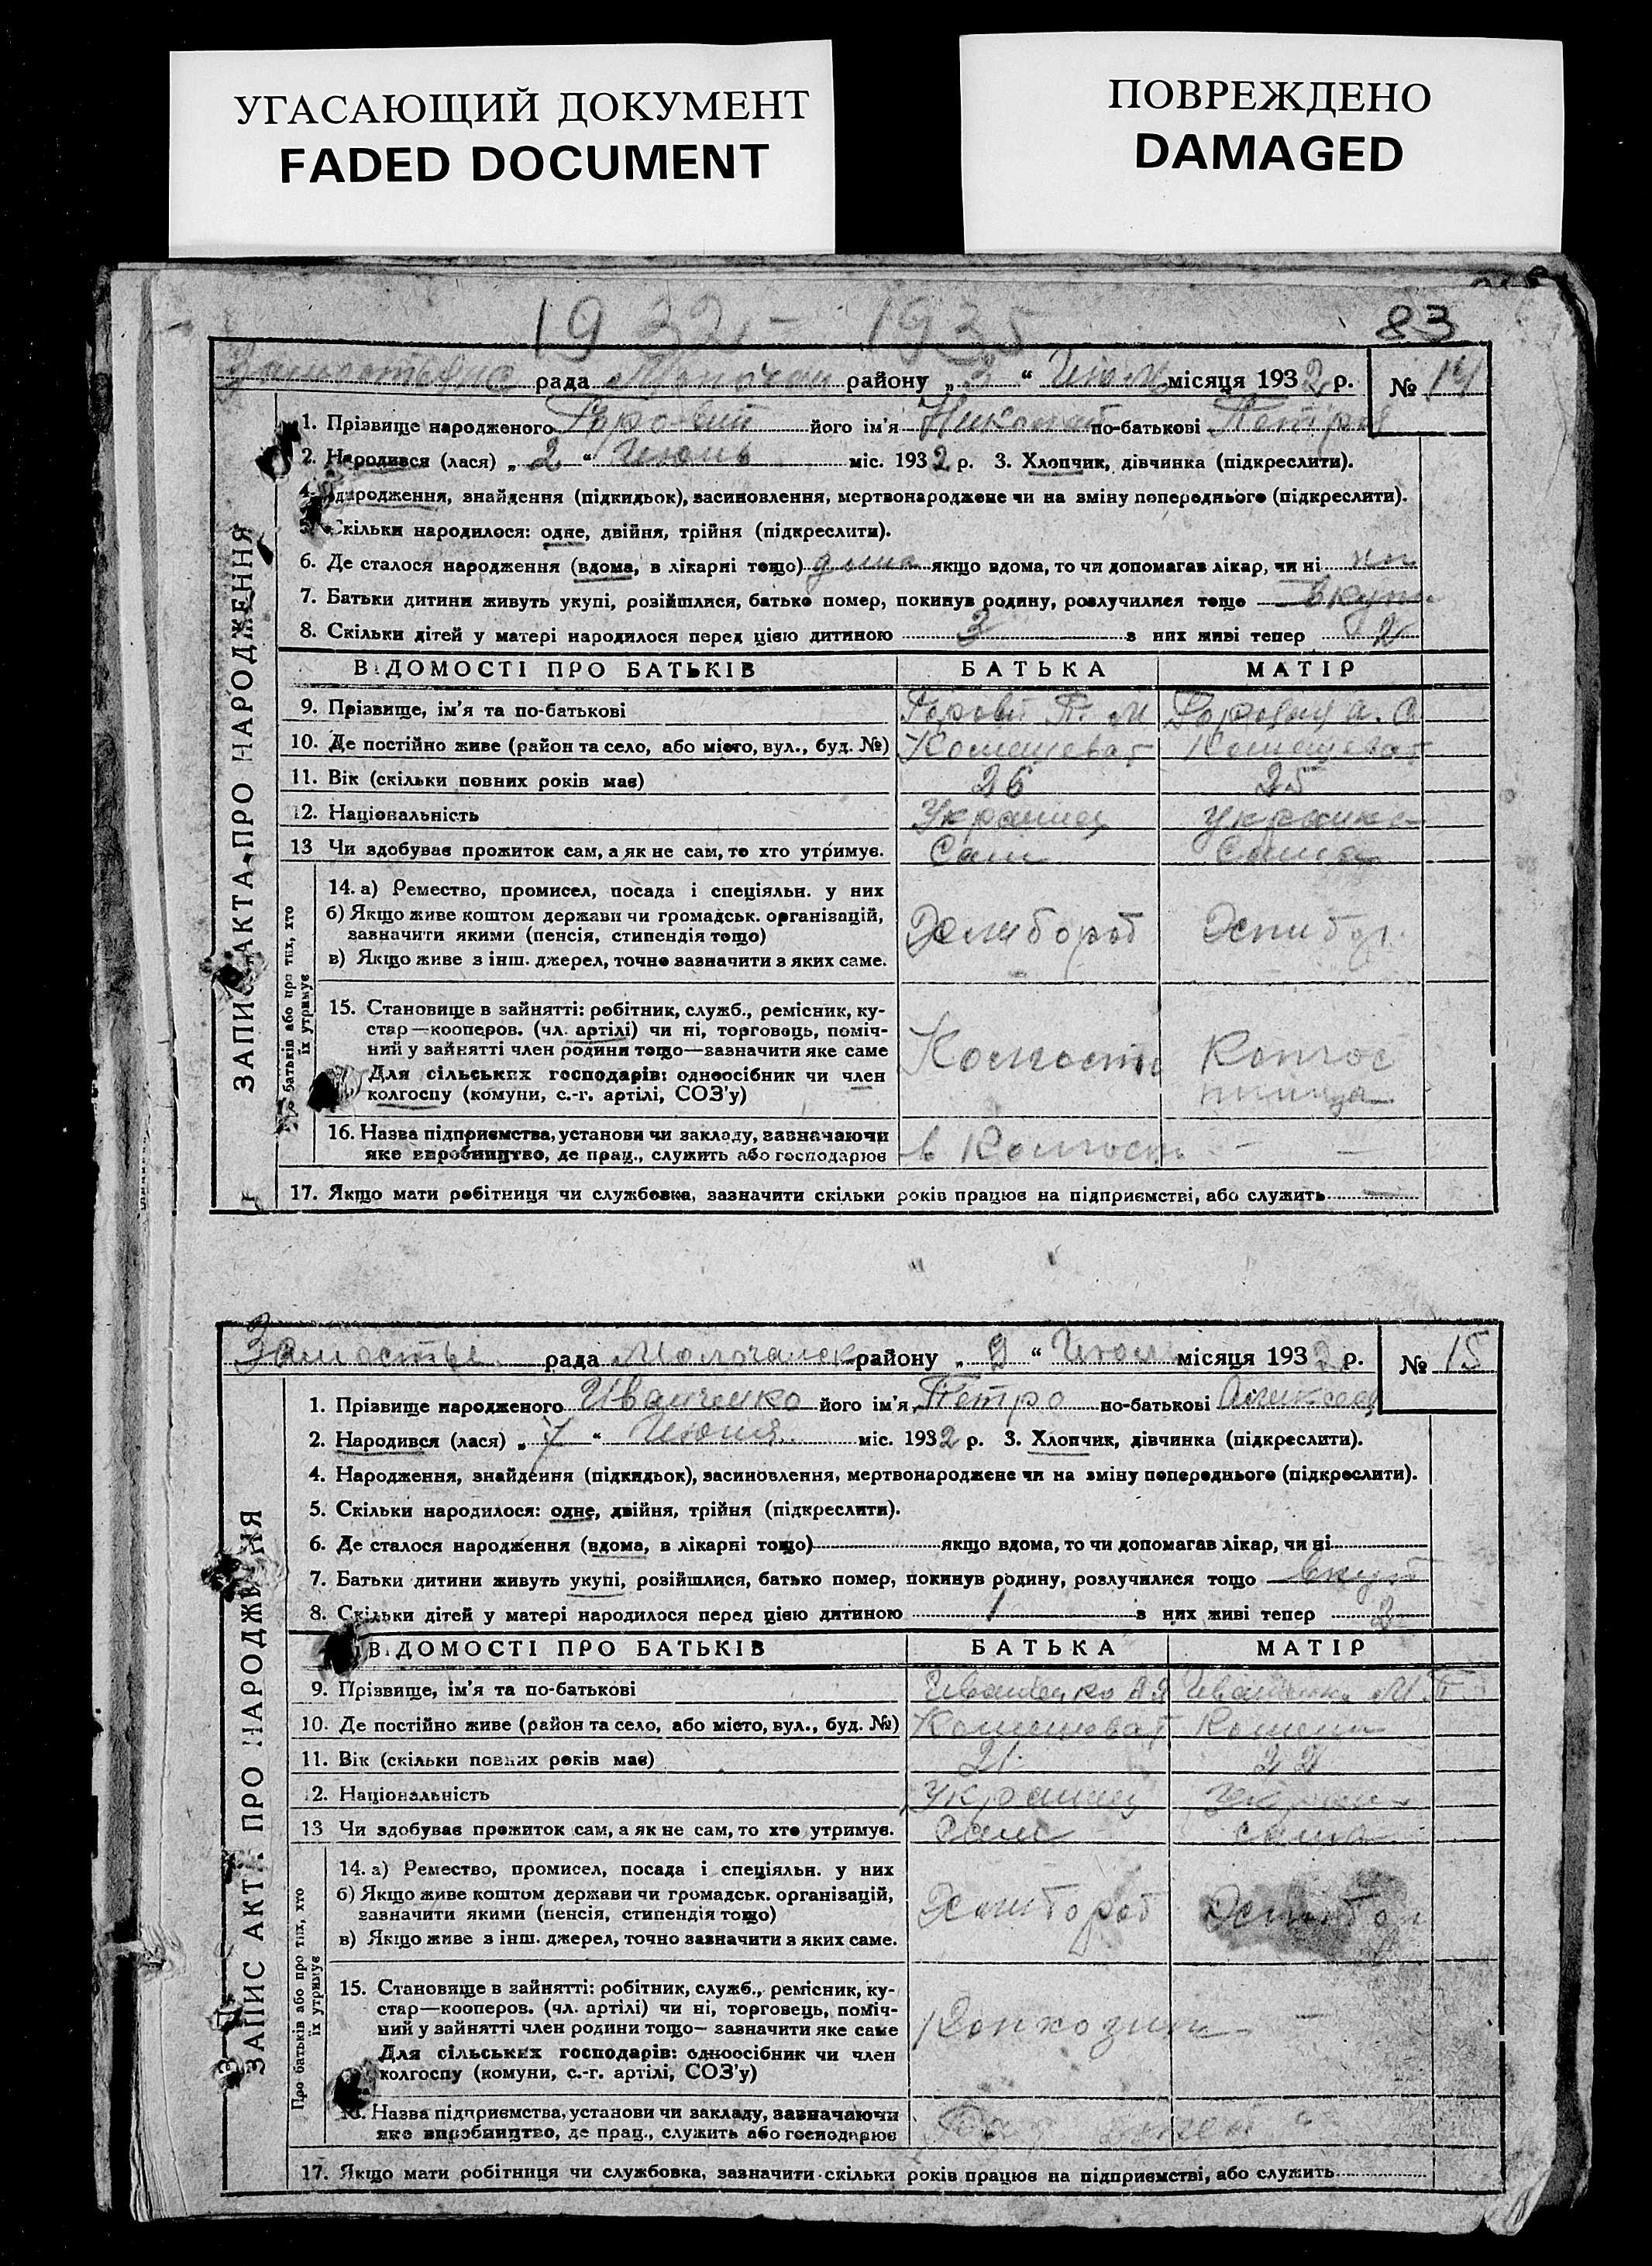 УГАСАЮЩИЙ ДОКУМЕНТ
FADED DOCUMENT
ПОВРЕЖДЕНО
DAMAGED
1932 - 1935
83
рада района „ 3 “ місяця 1932 р. № 14
1. Прізвище народженого його ім'я Николай по-батькові Петров
2. Народився (лася) „ 2 “ Июнь міс. 1932 р. 3. Хлопчик, дівчинка (підкреслити).
народження, знайдення (підкидьок), засиновлення, мертвонароджене чи на зміну попереднього (підкреслити).
Скільки народилося: одне, двійня, трійня (підкреслити).
6. Де сталося народження (вдома, в лікарні тощо) дома якщо вдома, то чи допомагав лікар, чи ні
7. Батьки дитини живуть укупі, розійшлися, батько помер, покинув родину, розлучилися тощо вкупи
8. Скільки дітей у матері народилося перед цією дитиною 3 з них живі тепер 2
ВІДОМОСТІ ПРО БАТЬКІВ БАТЬКА МАТІР
9. Прізвище, ім'я та по-батькові
10. Де постійно живе (район та село, або місто, вул., буд. №)
11. Вік (скільки повних років має) 26 25
12. Національність Украинец Украинка
13 Чи здобуває прожиток сам, а як не сам, то хто утримує. Сам Сама
14. а) Ремество, промисел, посада і спеціяльн. у них
б) Якщо живе коштом держави чи громадськ. організацій,
зазначити якими (пенсія, стипендія тощо)
в) Якщо живе з інш. джерел, точно зазначити з яких саме.
15. Становище в зайнятті: робітник, служб., ремісник, ку-
стар—кооперов. (чл. артілі) чи ні, торговець, поміч-
ний у зайнятті член родини тощо—зазначити яке саме
Для сільських господарів: одноосібник чи член
колгоспу (комуни, с.-г. артілі, СОЗ'у)
16. Назва підприємства, установи чи закладу, зазначаючи
яке виробництво, де прац., служить або господарює
17. Якщо мати робітниця чи службовка, зазначити скільки років працює на підприємстві, або служить
ЗАПИС АКТА ПРО НАРОДЖЕННЯ
батьків або про тих, хто
їх утримує
Замостье рада Молочанск району „ 9 “ місяця 1932 р. № 15
1. Прізвище народженого Иванченко його ім'я Петро по-батькові Алексеев
2. Народився (лася) „ 7 “ Июня міс. 1932 р. 3. Хлопчик, дівчинка (підкреслити).
4. Народження, знайдення (підкидьок), засиновлення, мертвонароджене чи на зміну попереднього (підкреслити).
5. Скільки народилося: одне, двійня, трійня (підкреслити).
6. Де сталося народження (вдома, в лікарні тощо) якщо вдома, то чи допомагав лікар, чи ні
7. Батьки дитини живуть укупі, розійшлися, батько помер, покинув родину, розлучилися тощо
8. Скільки дітей у матері народилося перед цією дитиною 1 з них живі тепер 2
ВІДОМОСТІ ПРО БАТЬКІВ БАТЬКА МАТІР
9. Прізвище, ім'я та по-батькові Иванченко А Я Иванченко М. Т.
10. Де постійно живе (район та село, або місто, вул., буд. №)
11. Вік (скільки повних років має) 21 22
12. Національність Украинец
13 Чи здобуває прожиток сам, а як не сам, то хто утримує. Сам сама
14. а) Ремество, промисел, посада і спеціяльн. у них
б) Якщо живе коштом держави чи громадськ. організацій,
зазначити якими (пенсія, стипендія тощо)
в) Якщо живе з інш. джерел, точно зазначити з яких саме.
15. Становище в зайнятті: робітник, служб., ремісник, ку-
стар—кооперов. (чл. артілі) чи ні, торговець, поміч-
ний у зайнятті член родини тощо—зазначити яке саме
Для сільських господарів: одноосібник чи член
колгоспу (комуни, с.-г. артілі, СОЗ'у)
Назва підприємства, установи чи закладу, зазначаючи
яке виробництво, де прац., служить або господарює
17. Якщо мати робітниця чи службовка, зазначити скільки років працює на підприємстві, або служить
ЗАПИС АКТА ПРО НАРОДЖЕННЯ
Про батьків або про тих, хто
їх утримує